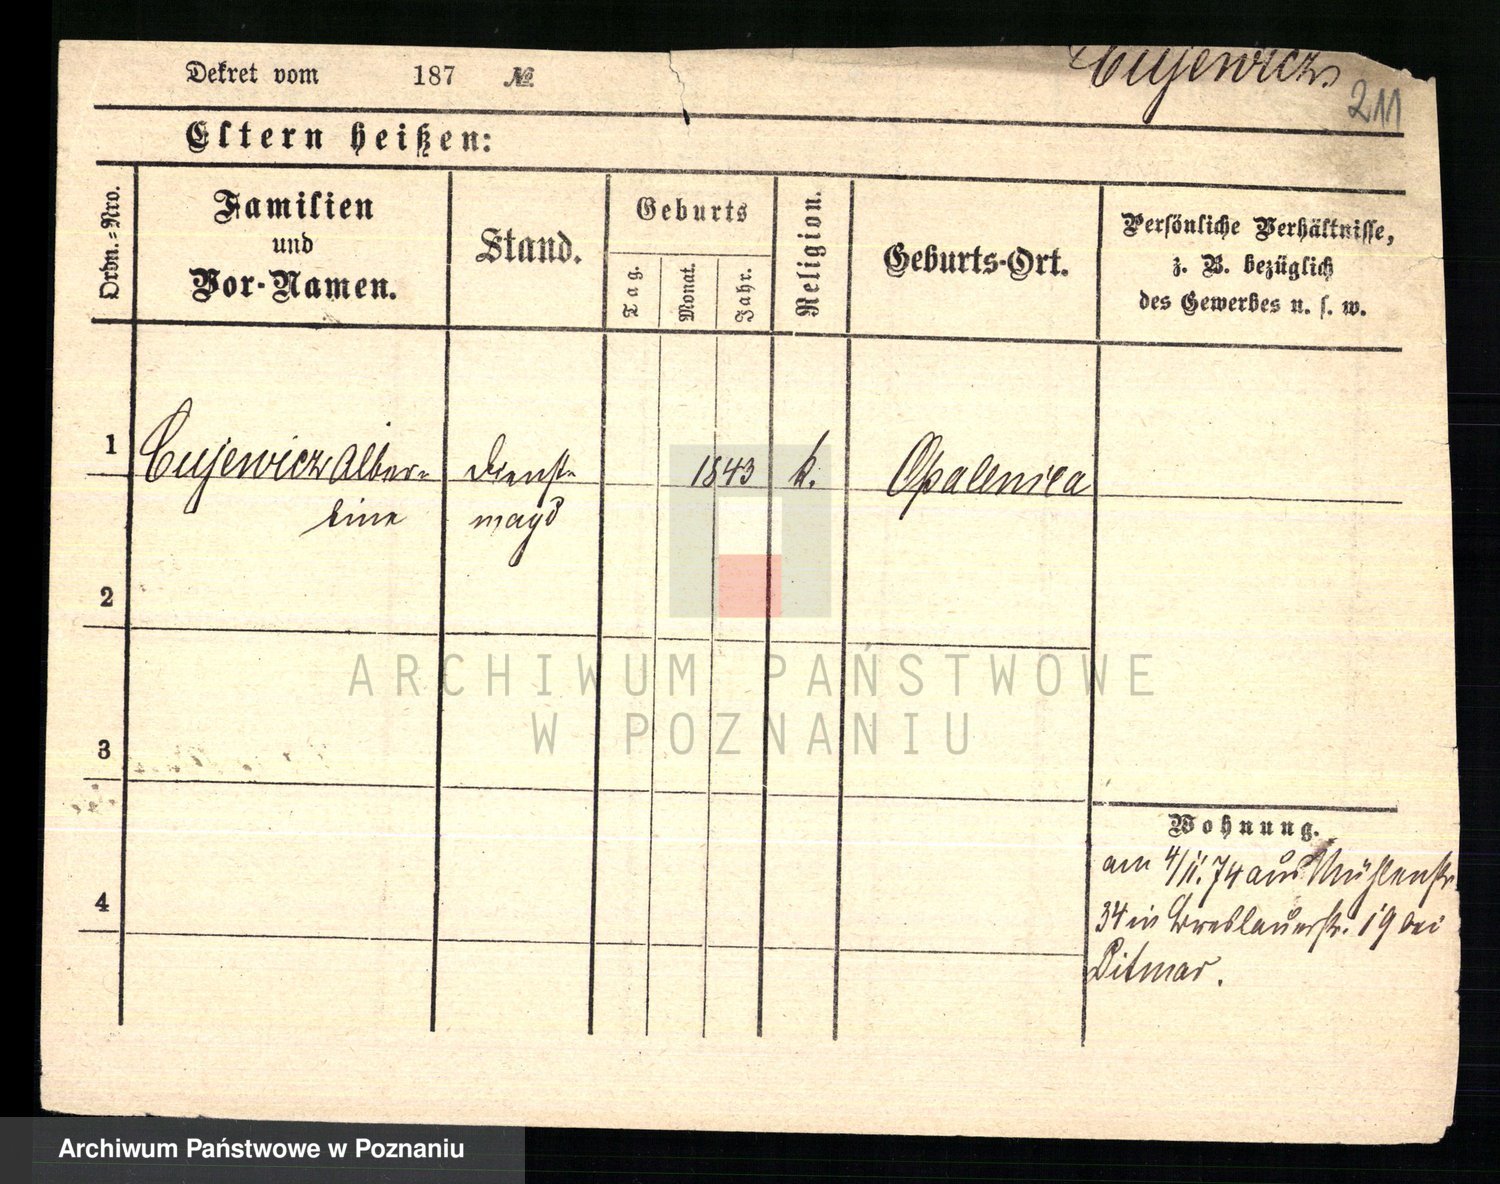 Dekret vom 187 № Cujewicz
211
Eltern heißen:
Ordn.-Nro.
Familien
und
Vor-Namen.
Stand.
Geburts
Tag.
Monat.
Jahr.
Religion.
Geburts-Ort.
Persönliche Verhältnisse,
z. B. bezüglich
des Gewerbes u. s. w.
1 Cujewicz Alber- Dienst- 1843 k. Opalenica
tine magd
2
3
4
Wohnung.
am 4/11.74 aus Mühlenstr.
34 in Breslauerstr. 19 bei
Ditmar.
ARCHIWUM PAŃSTWOWE
W POZNANIU
Archiwum Państwowe w Poznaniu